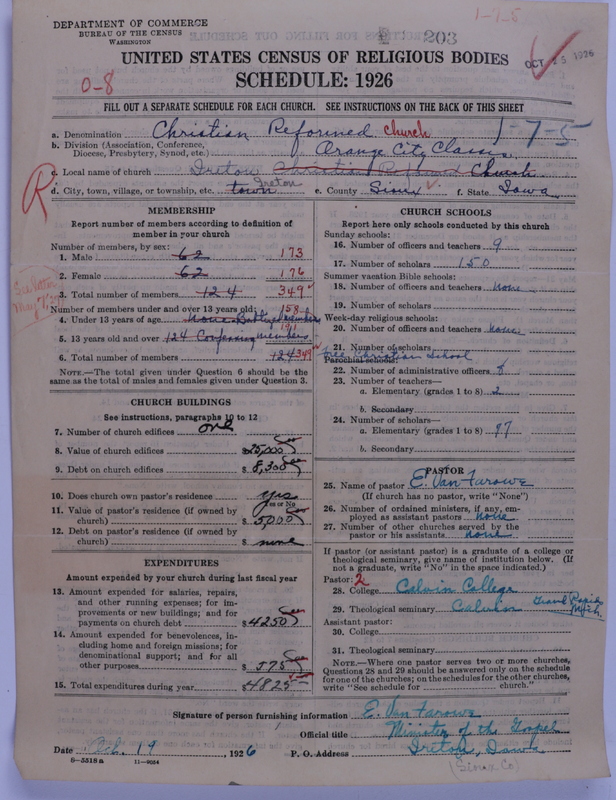 1-7-5
DEPARTMENT OF COMMERCE
BUREAU OF THE CENSUS
WASHINGTON
203
UNITED STATES CENSUS OF RELIGIOUS BODIES
OCT 25 1926
SCHEDULE: 1926
0-8
FILL OUT A SEPARATE SCHEDULE FOR EACH CHURCH. SEE INSTRUCTIONS ON THE BACK OF THIS SHEET
a. Denomination Christian Reformed Church 1-7-5
b. Division (Association, Conference, Diocese, Presbytery, Synod, etc.) Orange City Classis
c. Local name of church Ireton Christian Reformed Church
d. City, town, village, or township, etc. town Ireton e. County Sioux f. State Iowa
R
MEMBERSHIP
Report number of members according to definition of member in your church
Number of members, by sex:
1. Male 62 173
2. Female 62 176
3. Total number of members 124 349
See letter
Number of members under and over 13 years old:
4. Under 13 years of age none Baptized members 158
5. 13 years old and over 124 Confessing members 191
6. Total number of members 124 349
NOTE.—The total given under Question 6 should be the same as the total of males and females given under Question 3.
CHURCH BUILDINGS
See instructions, paragraphs 10 to 12
7. Number of church edifices one
8. Value of church edifices $25,000
9. Debt on church edifices $8,300
10. Does church own pastor's residence yes
Yes or No
11. Value of pastor's residence (if owned by church) $5000
12. Debt on pastor's residence (if owned by church) $ none
EXPENDITURES
Amount expended by your church during last fiscal year
13. Amount expended for salaries, repairs, and other running expenses; for improvements or new buildings; and for payments on church debt $4250
14. Amount expended for benevolences, including home and foreign missions; for denominational support; and for all other purposes $575
15. Total expenditures during year $4825
CHURCH SCHOOLS
Report here only schools conducted by this church
Sunday schools:
16. Number of officers and teachers 9
17. Number of scholars 150
Summer vacation Bible schools:
18. Number of officers and teachers none
19. Number of scholars
Week-day religious schools:
20. Number of officers and teachers none
21. Number of scholars
free Christian School
Parochial schools:
22. Number of administrative officers
23. Number of teachers—
a. Elementary (grades 1 to 8) 2
b. Secondary
24. Number of scholars—
a. Elementary (grades 1 to 8)
b. Secondary
PASTOR
25. Name of pastor E. Van Farowe
(If church has no pastor, write "None")
26. Number of ordained ministers, if any, employed as assistant pastors none
27. Number of other churches served by the pastor or his assistants none
If pastor (or assistant pastor) is a graduate of a college or theological seminary, give name of institution below. (If not a graduate, write "No" in the space indicated.)
Pastor: 2
28. College Calvin College
29. Theological seminary Calvin Grand Rapids Mich.
Assistant pastor:
30. College
31. Theological seminary
NOTE.—Where one pastor serves two or more churches, Questions 28 and 29 should be answered only on the schedule for one of the churches; on the schedules for the other churches, write "See schedule for ________ church."
Signature of person furnishing information E. Van Farowe
Official title Minister of the Gospel
Date Oct. 19, 1926 P. O. Address Ireton, Iowa
8-5518a 11-9054
(Sioux Co)